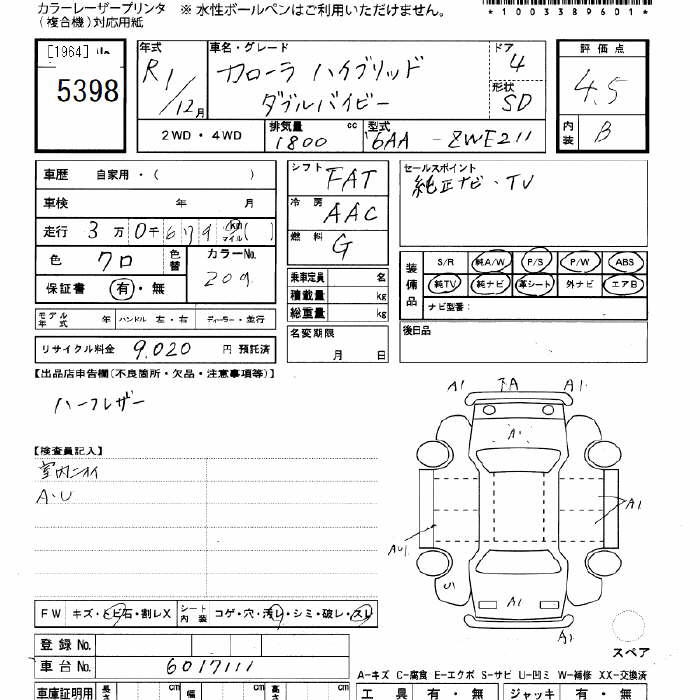 カラーレーザープリンタ ※ 水性ボールペンはご利用いただけません。
(複合機)対応用紙
*1003389601*
[1964]
5398
年式 R1/12月
車名・グレード カローラ ハイブリッド
ダブルバイビー
ドア 4
形状 SD
評価点 4.5
内装 B
2WD・4WD 排気量 1800 cc 型式 6AA - ZWE211
車歴 自家用・( )
車検 年 月
走行 3万 0千 679 km マイル ( )
色 クロ 色替 カラーNo. 209
保証書 有・無
モデル年式 年 ハンドル 左・右 ディーラー・並行
リサイクル料金 9,020 円 預託済
シフト FAT
冷房 AAC
燃料 G
乗車定員 名
積載量 kg
総重量 kg
名変期限
月 日
セールスポイント
純正ナビ・TV
装備品 S/R 純A/W P/S P/W ABS
純TV 純ナビ 革シート 外ナビ エアB
ナビ型番:
後日品
【出品店申告欄(不良箇所・欠品・注意事項等)】
ハーフレザー
【検査員記入】
室内ニオイ
A・U
A1 A1
A1
A1
A1
U1
A1
A1
FW キズ・ヒビ石・割レX シート内装 コゲ・穴・汚レ・シミ・破レ・スレ
登録No.
車台No. 6017111
スペア
A-キズ C-腐食 E-エクボ S-サビ U-凹ミ W-補修 XX-交換済
車庫証明用 長さ cm 幅 cm 高さ cm
工具 有・無 ジャッキ 有・無